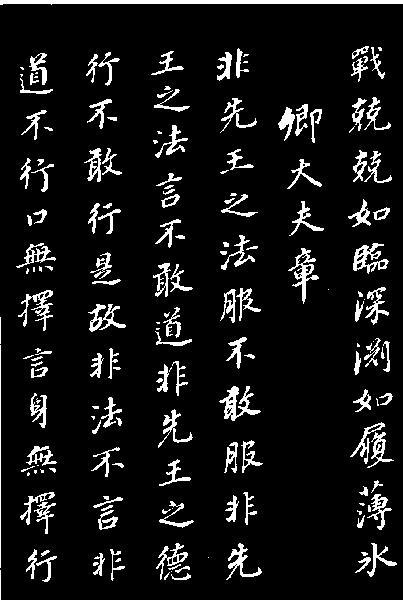 戰兢兢如臨深淵如履薄冰
卿大夫章
非先王之法服不敢服非先
王之法言不敢道非先王之德
行不敢行是故非法不言非
道不行口無擇言身無擇行